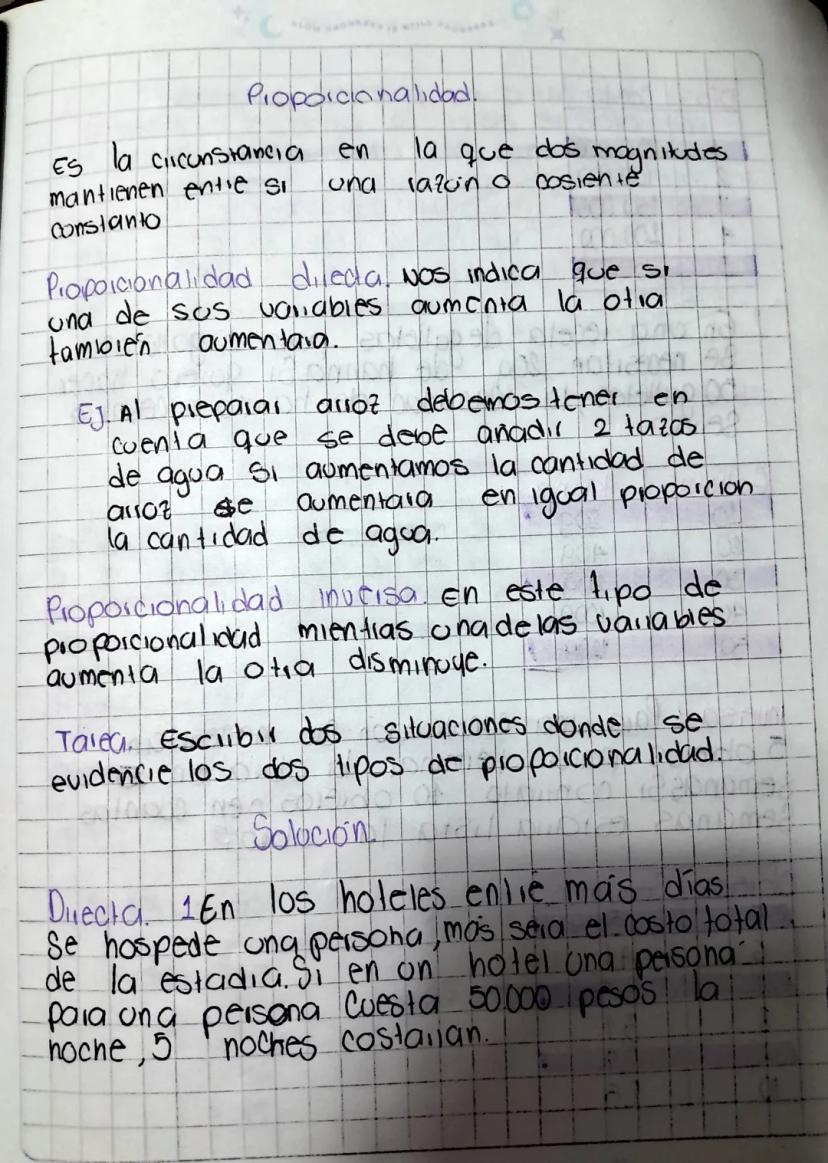 Proporcionalidad.
Es la circunstancia en la que dos magnitudes
mantienen entre si una razón o cosiente
constanto
Proporcionalidad directa. Nos indica que si
una de sus variables aumenta la otra
también aumentara.
Ej. Al preparar arroz debemos tener en
cuenta que se debe añadir 2 tazas
de agua si aumentamos la cantidad de
arroz se aumentara en igual proporcion
la cantidad de agua.
Proporcionalidad inversa. En este tipo de
proporcionalidad mientras una de las variables
aumenta la otra disminuye.
Tarea. Escribir dos situaciones donde se
evidencie los dos tipos de proporcionalidad.
Solución.
Directa. 1 En los hoteles entre más días
se hospede una persona, más sera el costo total
de la estadia. Si en un hotel una persona
para una persona cuesta 50.000 pesos la
noche, 5 noches costarian.